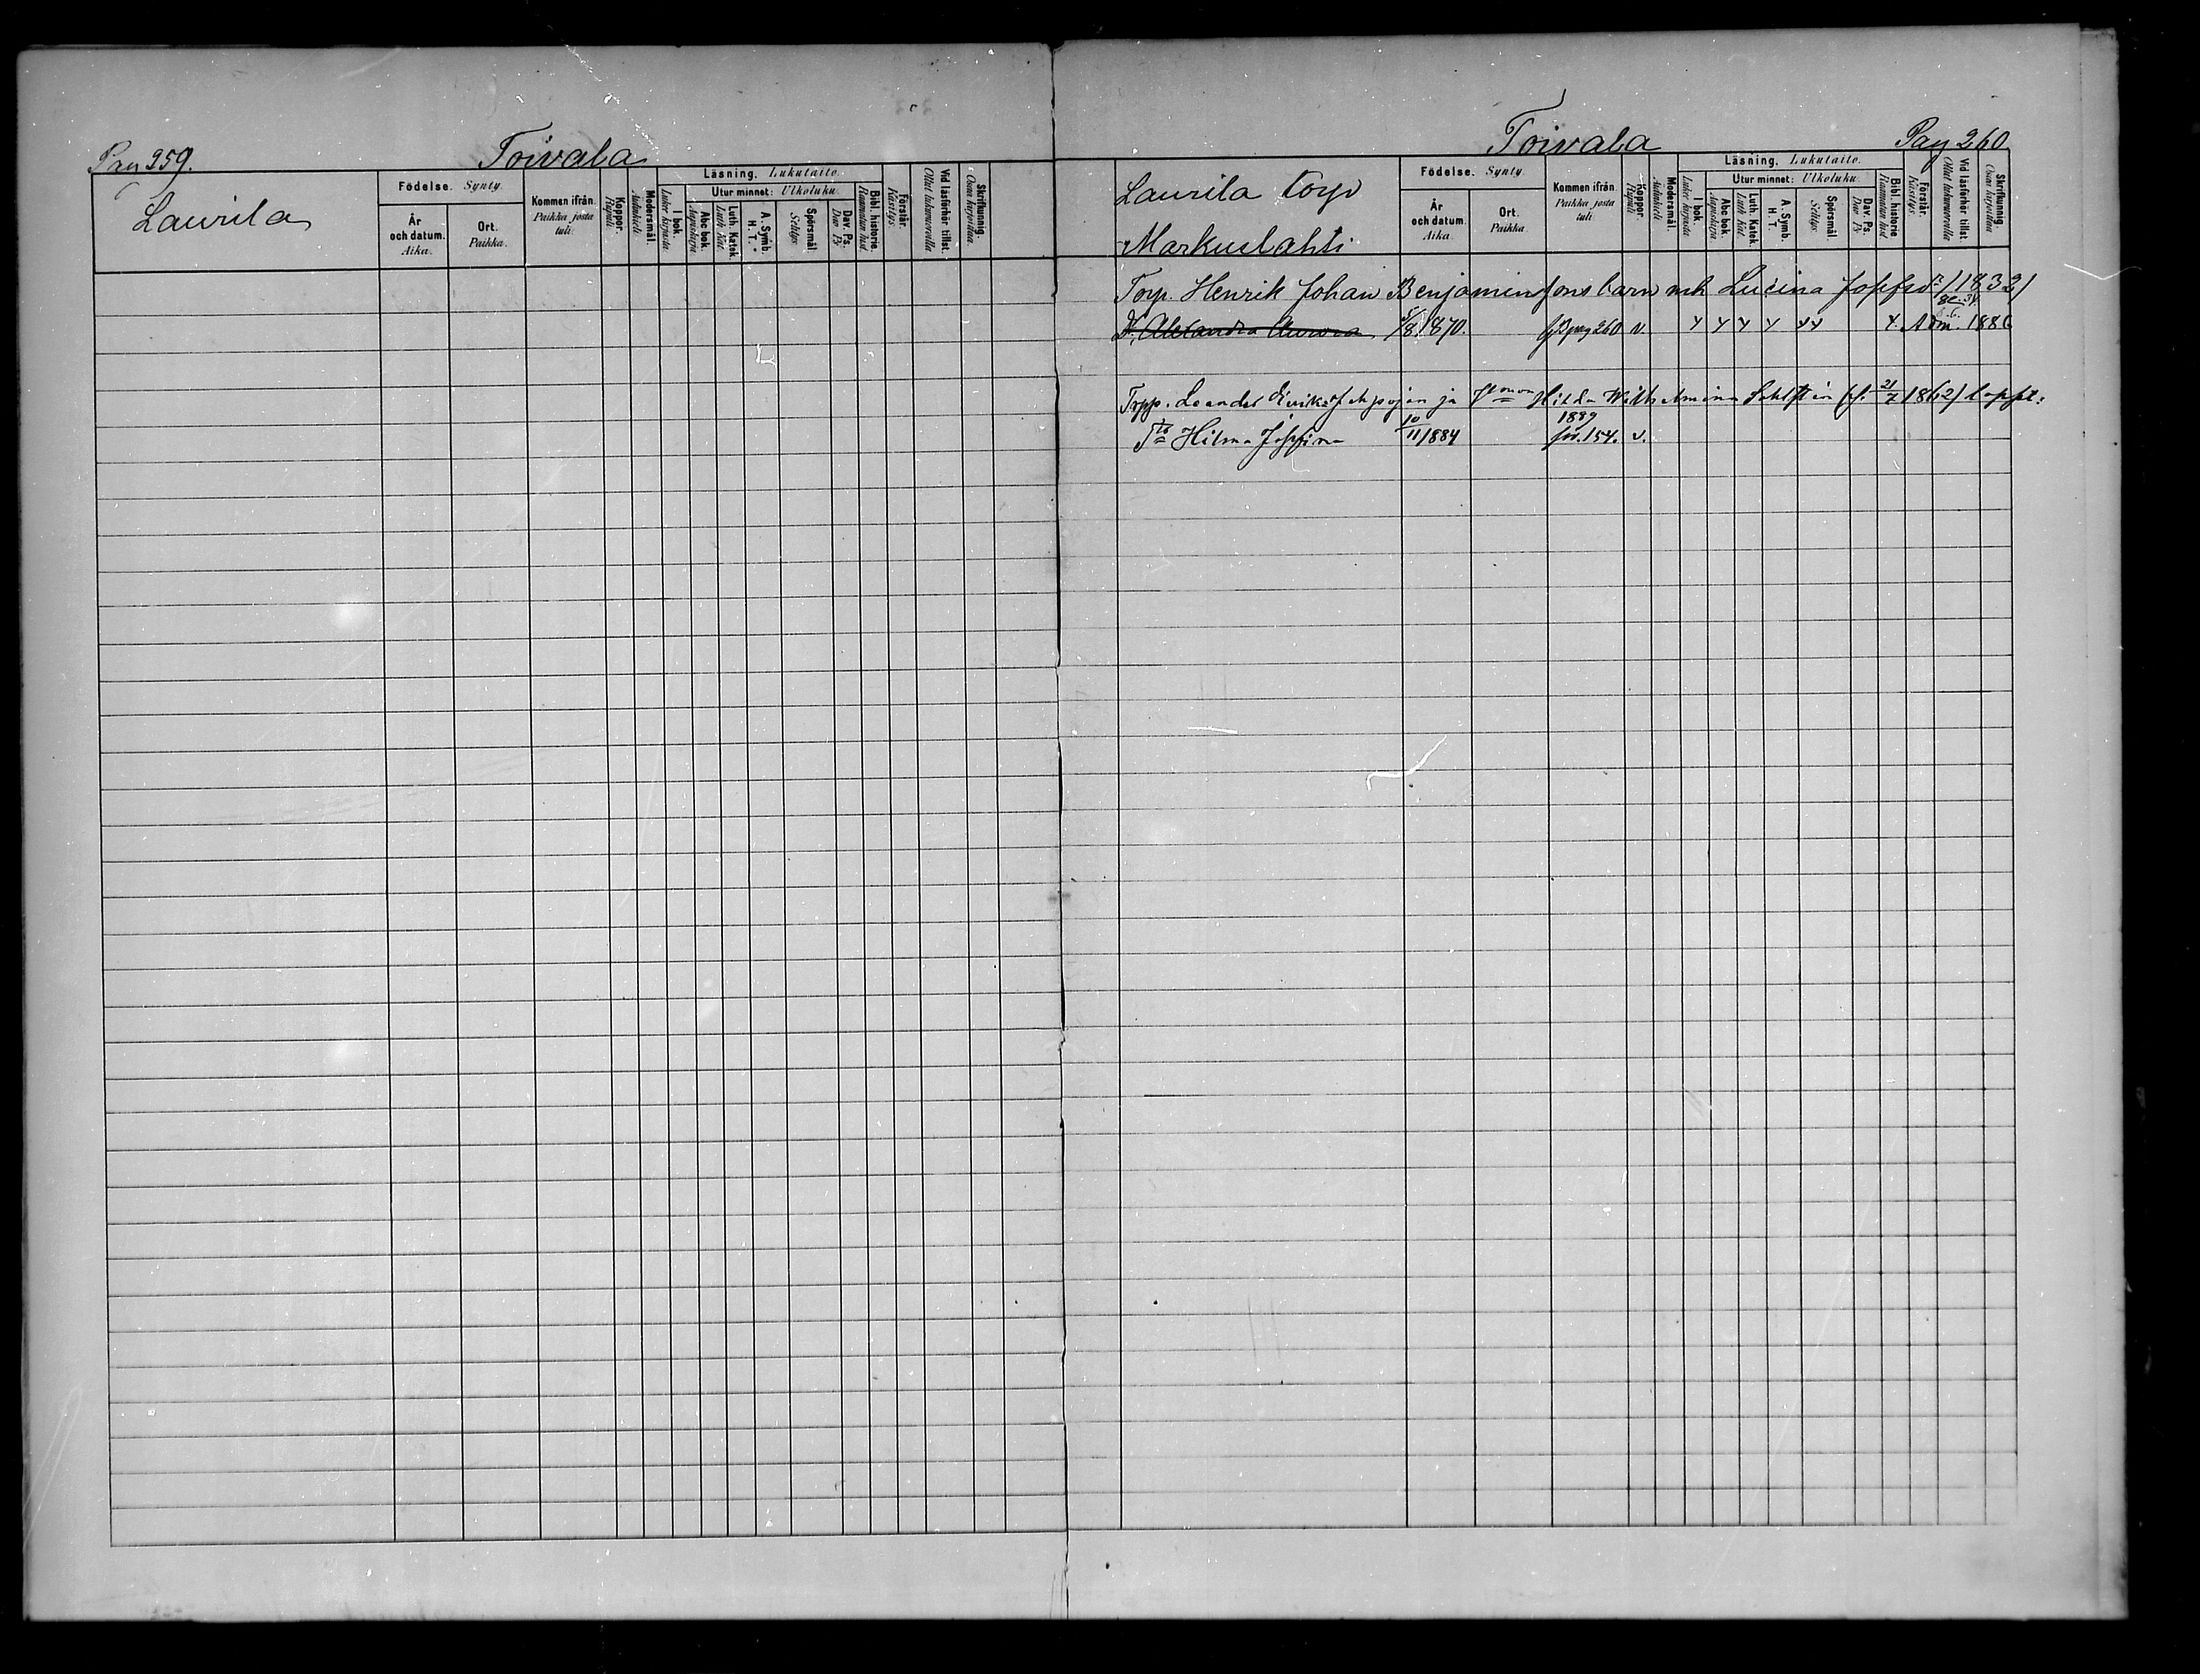 Pag 259.
Toivala
Laurila
Födelse. Synty.
År och datum. Aika.
Ort. Paikka.
Kommen ifrån. Paikka, josta tuli.
Koppor. Rupuli
Modersmål. Äidinkieli
Läsning. Lukutaito.
I bok. Lukee kirjasta
Utur minnet: Ulkoluku.
Abc bok. Aapiskirja
Luth. Katek. Luth Kat.
A. Symb. H. T.
Spörsmål. Selitys.
Dav. Ps. Dav. Ps
Bibl. historie. Raamatun hist.
Förstår. Käsitys.
Vid läsförhör tillst. Ollut lukuvuorolla
Skrifkunnig. Osaa kirjoittaa
Toivala
Pag 260
Laurila torp
Markuslahti
Födelse. Synty.
År och datum. Aika.
Ort. Paikka.
Kommen ifrån. Paikka, josta tuli.
Koppor. Rupuli
Modersmål. Äidinkieli
Läsning. Lukutaito.
I bok. Lukee kirjasta
Utur minnet: Ulkoluku.
Abc bok. Aapiskirja
Luth. Katek. Luth Kat.
A. Symb. H. T.
Spörsmål. Selitys.
Dav. Ps. Dav. Ps
Bibl. historie Raamatun hist
Förstår. Käsitys.
Vid läsförhör tillst. Ollut lukuvuorolla
Skrifkunnig. Osaa kirjoittaa
Torp. Henrik Johan Benjaminssons barn mh Lucina 1832)
D. Alexandra Aurora 1870. pag 260 v. Adm. 1886
Torpp. Leander Erik ja Hilda Wilhelmina (s. 21/7 1862) lapset:
1889
Hilma Josefina 10/11 1884 siv. 154. v.